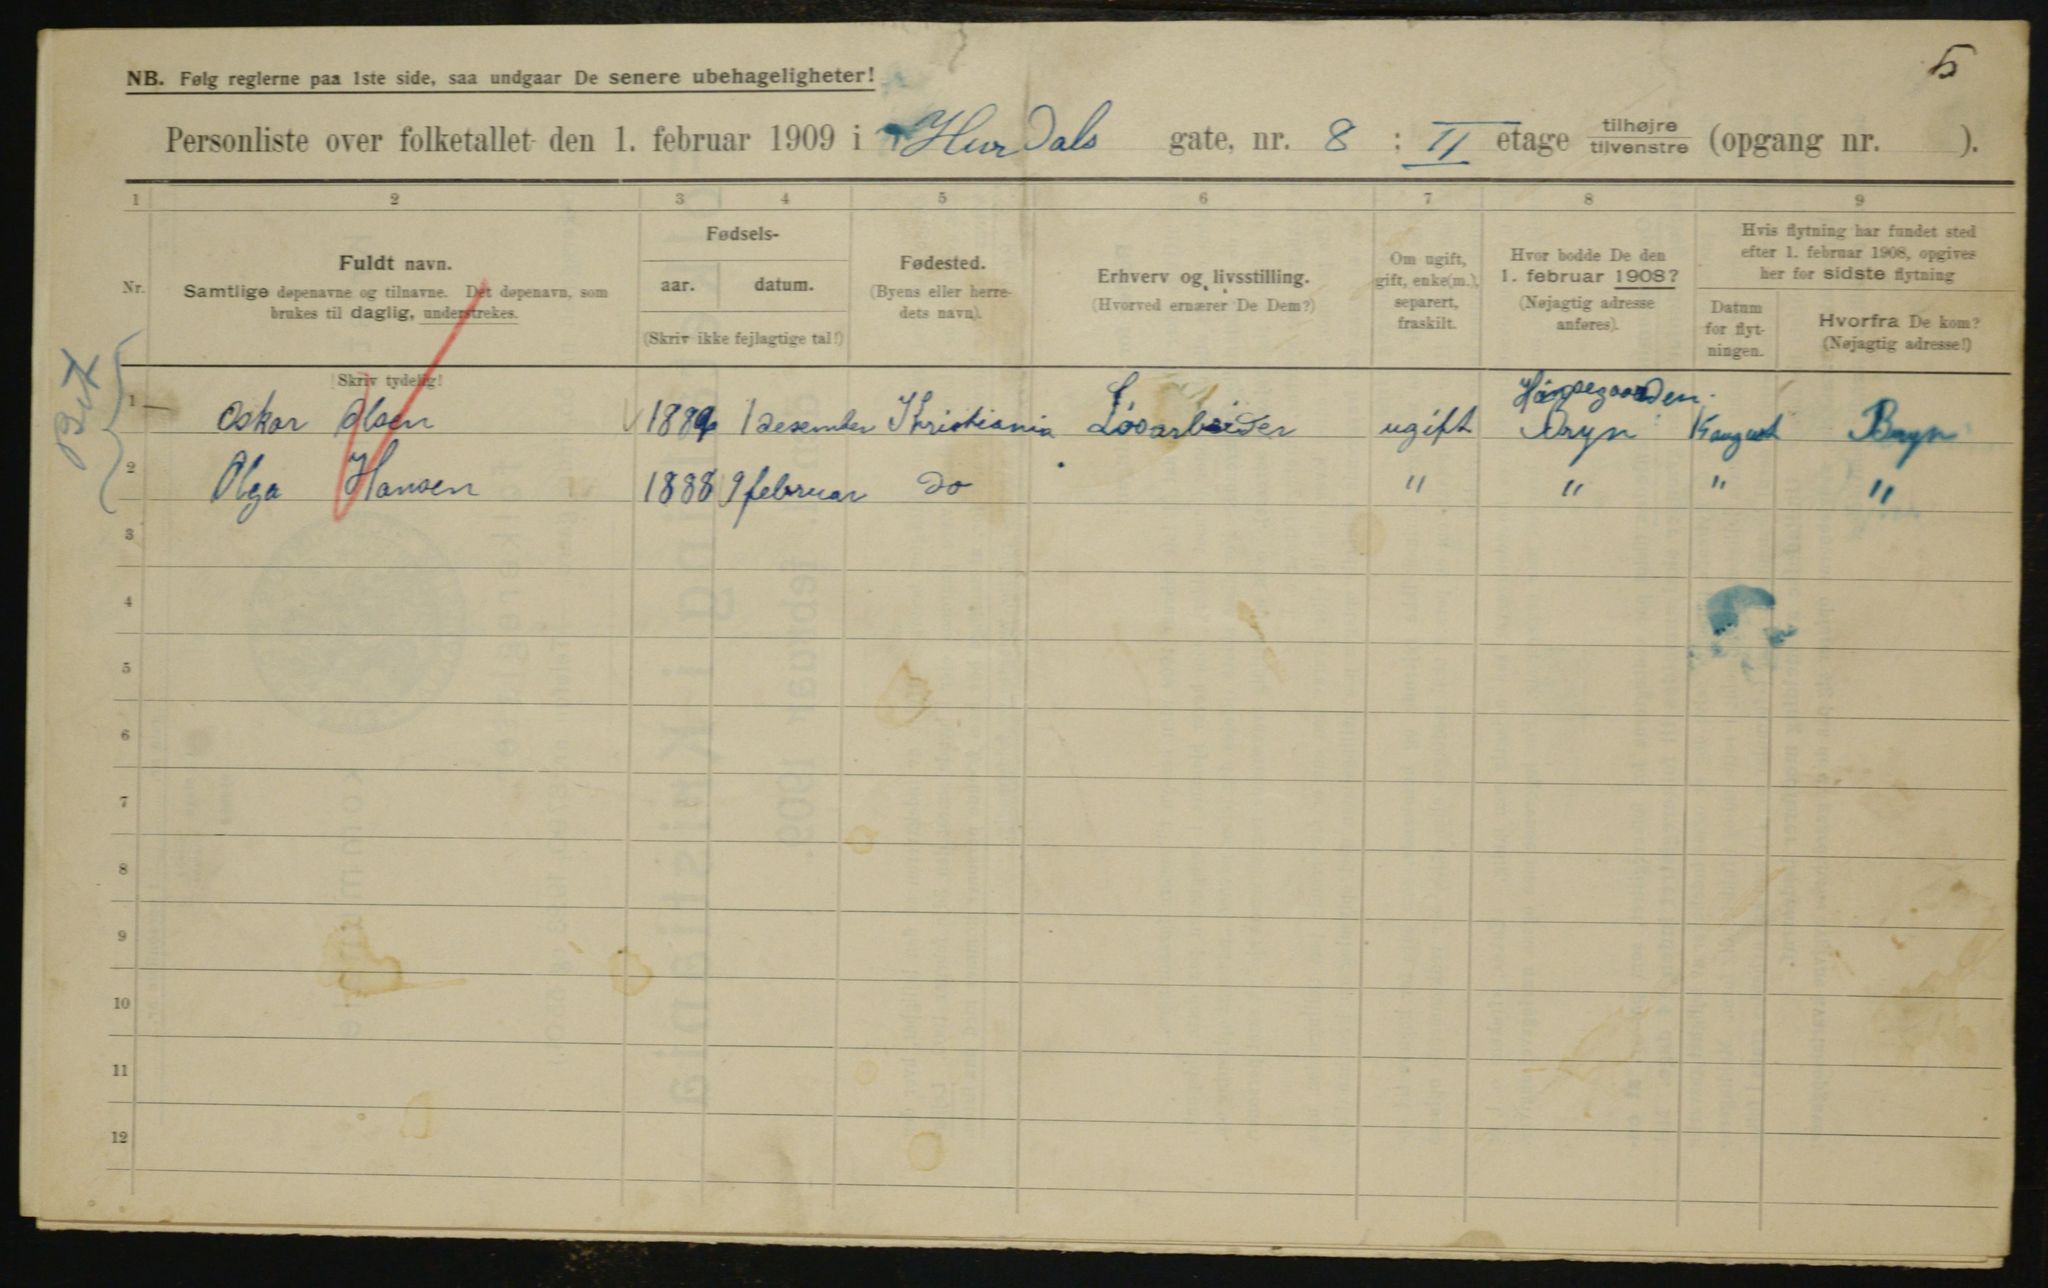 5
NB. Følg reglerne paa 1ste side, saa undgaar De senere ubehageligheter!
Personliste over folketallet den 1. februar 1909 i Hurdals gate, nr. 8 : II etage tilhøjre tilvenstre (opgang nr. ).
1 2 3 4 5 6 7 8 9
Nr.
Fuldt navn.
Samtlige døpenavne og tilnavne. Det døpenavn, som
brukes til daglig, understrekes.
Skriv tydelig!
Fødsels-
aar. datum.
(Skriv ikke fejlagtige tal!)
Fødested.
(Byens eller herre-
dets navn).
Erhverv og livsstilling.
(Hvorved ernærer De Dem?)
Om ugift,
gift, enke(m.),
separert,
fraskilt.
Hvor bodde De den
1. februar 1908?
(Nøjagtig adresse
anføres).
Hvis flytning har fundet sted
efter 1. februar 1908, opgives
her for sidste flytning
Datum
for flyt-
ningen.
Hvorfra De kom?
(Nøjagtig adresse!)
1 Oskar Olsen 1 desember Kristiania Løsarbeider ugift Bryn august Bryn
2 Olga Hansen 1888 9 februar do " " " "
3
4
5
6
7
8
9
10
11
12